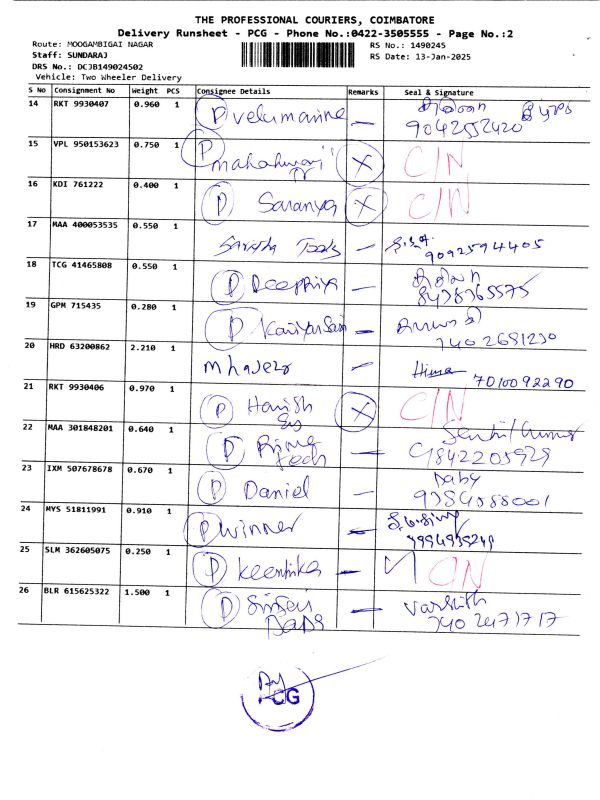 THE PROFESSIONAL COURIERS, COIMBATORE
Delivery Runsheet - PCG - Phone No.:0422-3505555 - Page No.:2
Route: MOOGAMBIGAI NAGAR RS No.: 1490245
Staff: SUNDARAJ RS Date: 13-Jan-2025
DRS No.: DCJB149024502
Vehicle: Two Wheeler Delivery
S No Consignment No Weight PCS Consignee Details Remarks Seal & Signature
14 RKT 9930407 0.960 1 P velumarine —
9042552420
15 VPL 950153623 0.750 1 P X C/N
16 KDI 761222 0.400 1 P Saranya X C/N
17 MAA 400053535 0.550 1 —
9092594405
18 TCG 41465808 0.550 1 P Deepriya —
8438365575
19 GPM 715435 0.280 1 P —
7402681230
20 HRD 63200862 2.210 1 —
7010092290
21 RKT 9930406 0.970 1 P Harish X C/N
22 MAA 301848201 0.640 1 P Prime Tech — Senthil Kumar
9842205929
23 IXM 507678678 0.670 1 P Daniel — Baby
24 MYS 51811991 0.910 1 P Winner —
25 SLM 362605075 0.250 1 P Keerthika — C/N
26 BLR 615625322 1.500 1 P — Varshith
7402471717
PCG